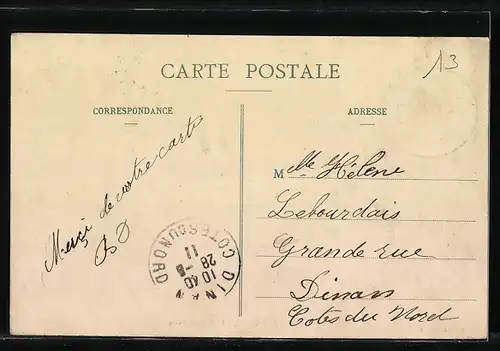 13
CARTE POSTALE
CORRESPONDANCE
ADRESSE
Merci de votre carte
BD
Mlle Hélène
Lebourdais
Grande rue
Dinan
Cotes du Nord
DINAN
COTES-DU-NORD
10 40
28 - 8
11